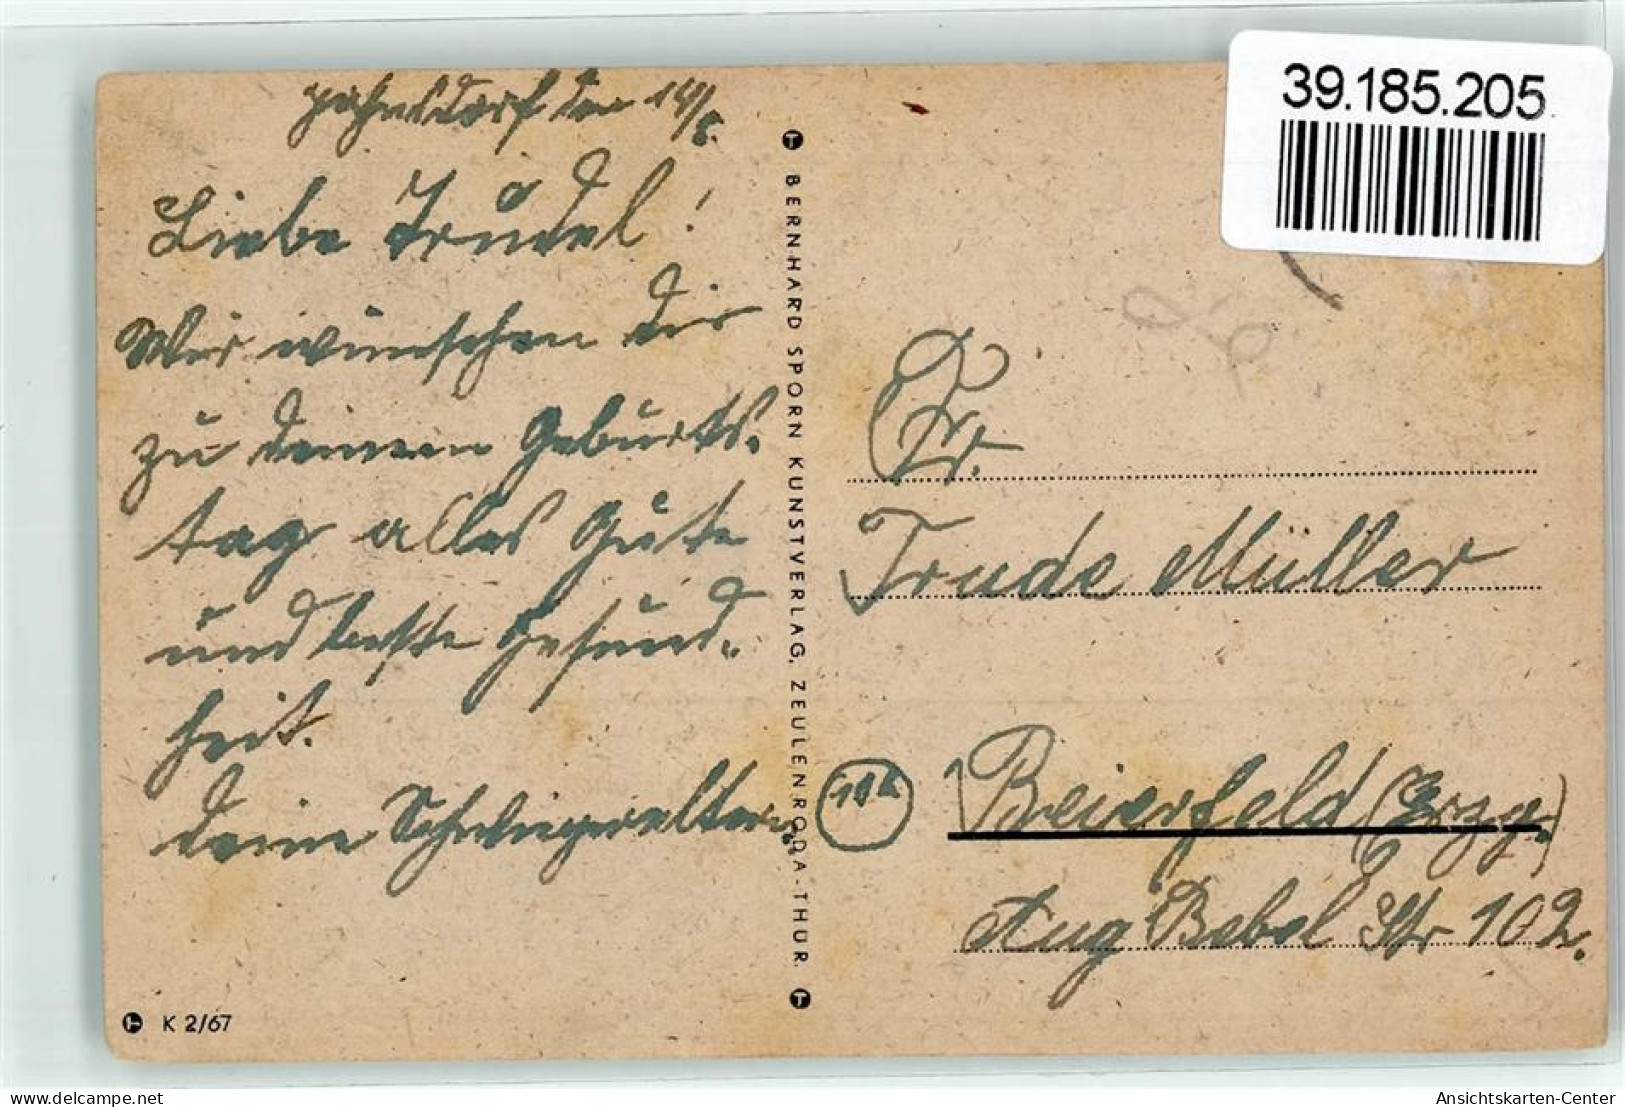 den 14/8.
Liebe Trudel!
Wir wünschen dir
zu deinem Geburts-
tag alles Gute
und beste Gesund-
heit.
deine Schwiegereltern.
BERNHARD SPORN KUNSTVERLAG, ZEULENRODA-THÜR.
K 2/67
39.185.205
Fr.
Trude Müller
10b
Beierfeld (Erzg.)
Aug Bebel Str 102.
Ansichtskarten-Center